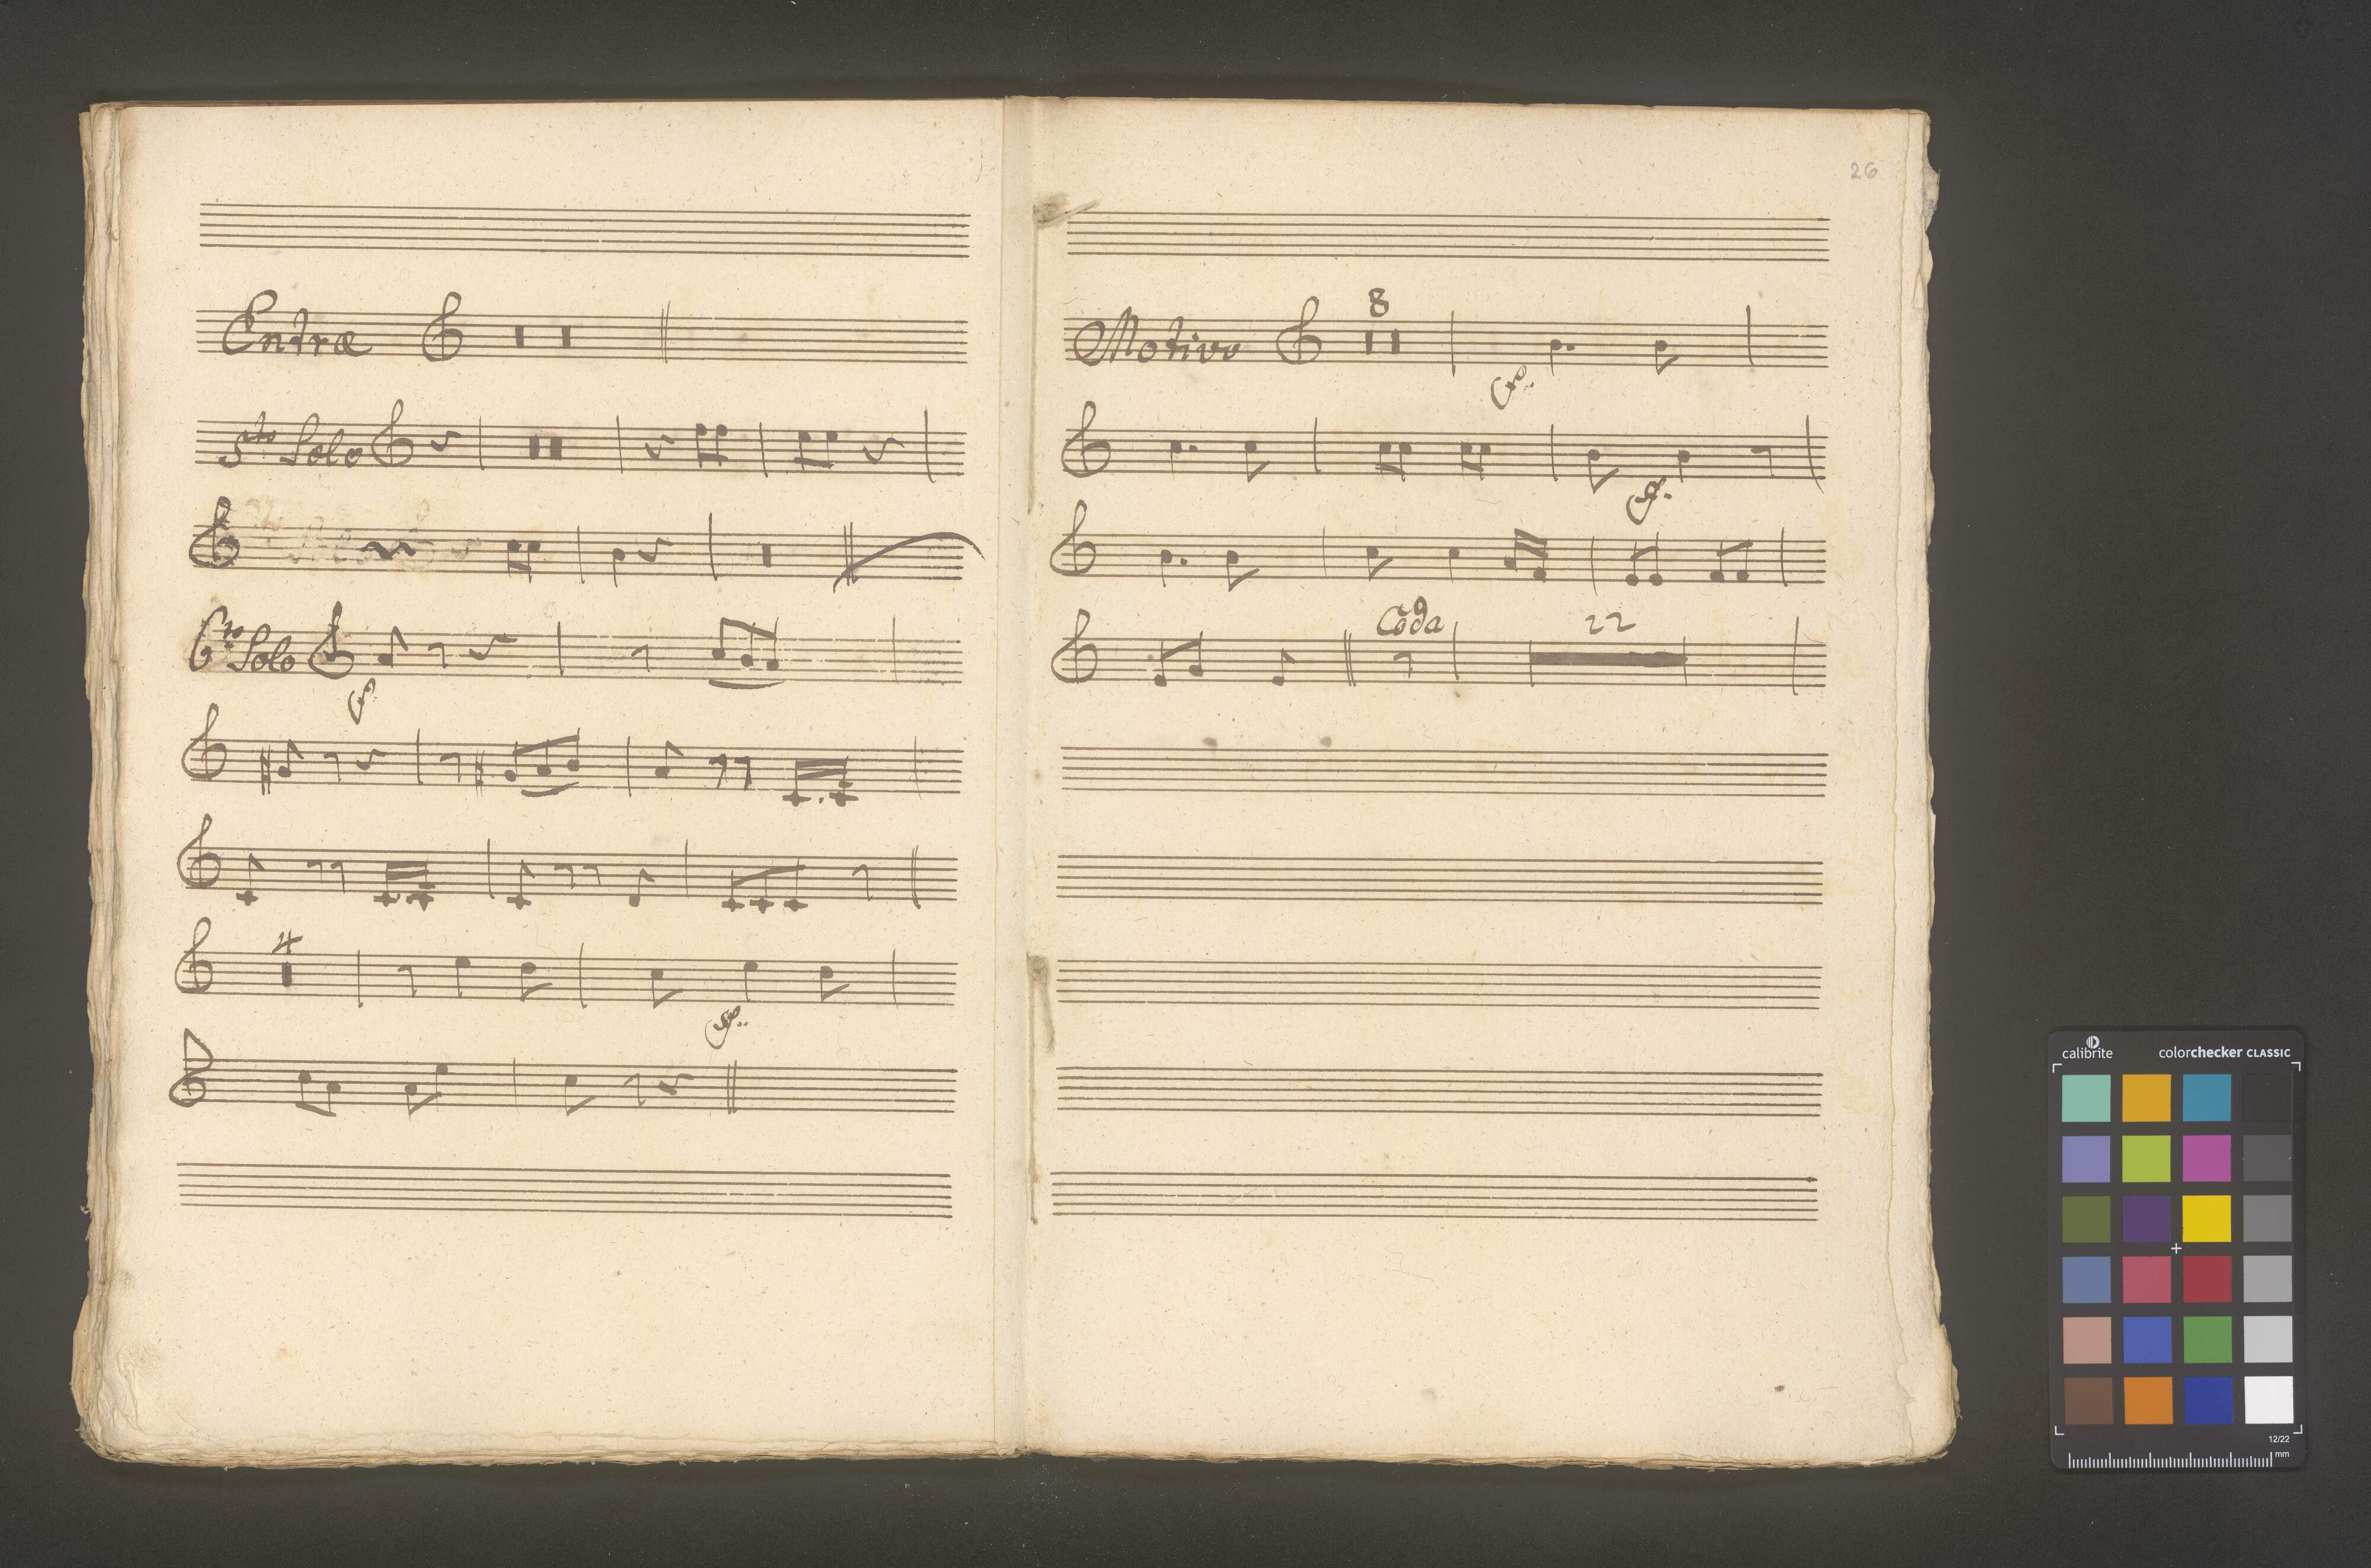 Entrœ
5to Solo
6to Solo
4
26
Motivo
8
Coda
9
22
calibrite
colorchecker CLASSIC
12/22
mm